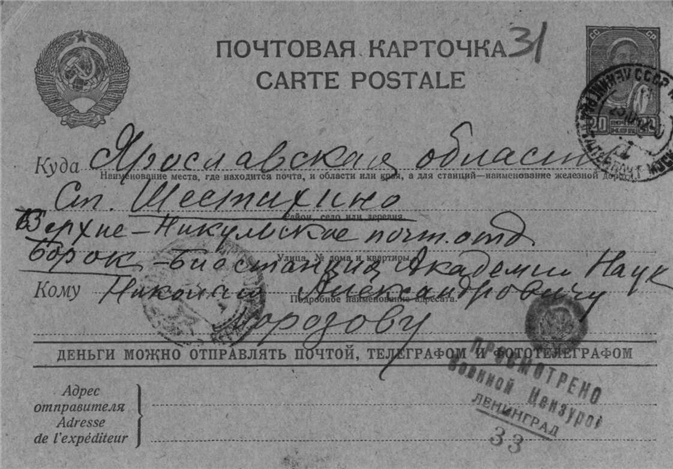 ПОЧТОВАЯ КАРТОЧКА 31
CARTE POSTALE
СС СР
20
Куда Ярославская область
Наименование места, где находится почта, и области или края, а для станций—наименование железной дороги
Ст. Шестихино
Район, село или деревня.
Верхне-Никульское почт. отд
Улица, № дома и квартиры
Борок - Биостанция Академии Наук
Кому Николаю Александровичу
Подробное наименование адресата.
Морозову
ДЕНЬГИ МОЖНО ОТПРАВЛЯТЬ ПОЧТОЙ, ТЕЛЕГРАФОМ И ФОТОТЕЛЕГРАФОМ
ПРОСМОТРЕНО
Военной Цензурой
ЛЕНИНГРАД
33
Адрес
отправителя
Adresse
de l'expéditeur